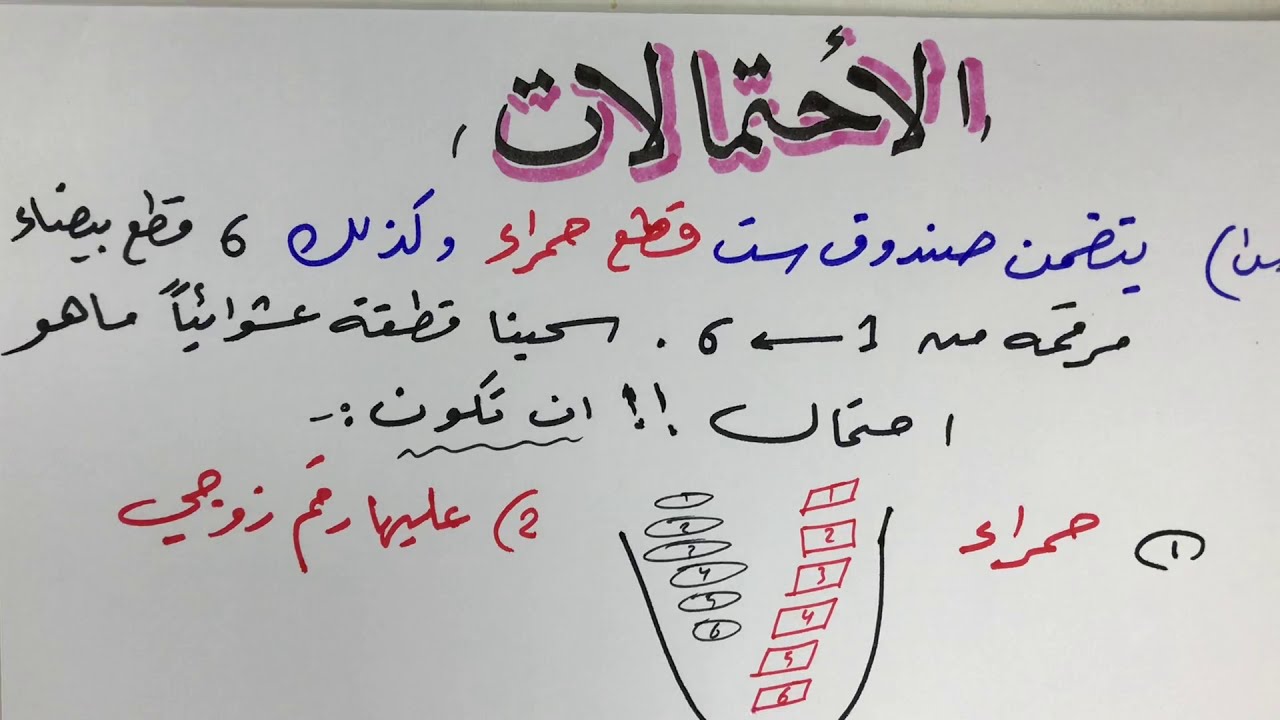 الأحتمالات
س١) يتضمن صندوق ست قطع حمراء وكذلك 6 قطع بيضاء
مرقمه من 1 ← 6 . سحبنا قطقة عشوائياً ماهو
احتمال !! ان تكون :-
١) حمراء
2) عليها رقم زوجي
1
2
3
4
5
6
1
2
3
4
5
6